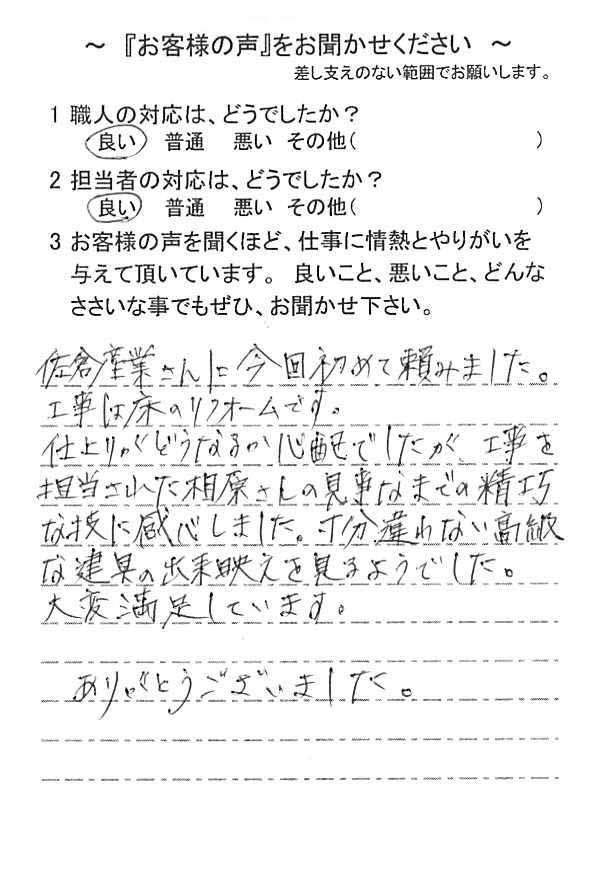 ～ 『お客様の声』をお聞かせください ～
差し支えのない範囲でお願いします。
1 職人の対応は、どうでしたか？
良い 普通 悪い その他( )
2 担当者の対応は、どうでしたか？
良い 普通 悪い その他( )
3 お客様の声を聞くほど、仕事に情熱とやりがいを
与えて頂いています。 良いこと、悪いこと、どんな
ささいな事でもぜひ、お聞かせ下さい。
佐倉産業さんに今回初めて頼みました。
工事は床のリフォームです。
仕上りがどうなるか心配でしたが 工事を
担当された相原さんの見事なまでの精巧
な技に感心しました。寸分違わない高級
な建具の出来映えを見るようでした。
大変満足しています。
ありがとうございました。